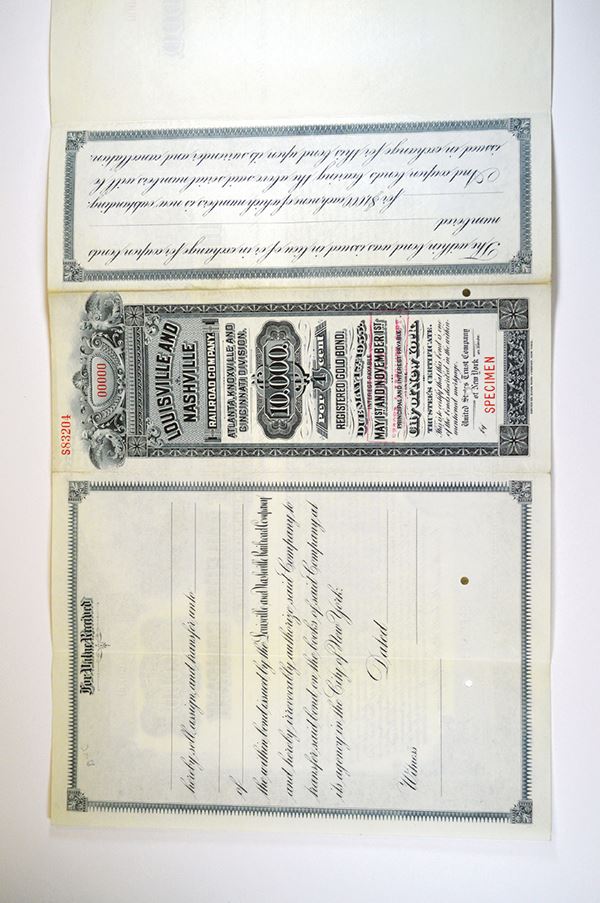 The within bond was issued in lieu of or in exchange for coupon bonds
numbered
for $1,000 each one of which numbers is now outstanding.
And coupon bonds bearing the above said numbers will be
issued in exchange for this bond upon its surrender and cancellation.
S83204
00000
LOUISVILLE AND
NASHVILLE
RAILROAD COMPANY.
ATLANTA, KNOXVILLE AND
CINCINNATI DIVISION.
10,000.
Four 4 Per cent
REGISTERED GOLD BOND,
DUE MAY 1, 1955.
INTEREST PAYABLE
MAY 1ST AND NOVEMBER 1ST.
PRINCIPAL AND INTEREST PAYABLE
City of New York.
TRUSTEE'S CERTIFICATE.
This is to certify that this bond is one
of the bonds described in the within
mentioned mortgage.
United States Trust Company
of New York
By
SPECIMEN
For Value Received
hereby sell, assign, and transfer unto
of
the within bond issued by the Louisville and Nashville Railroad Company
and hereby irrevocably authorize said Company to
transfer said bond on the books of said Company at
its agency in the City of New York.
Dated
Witness